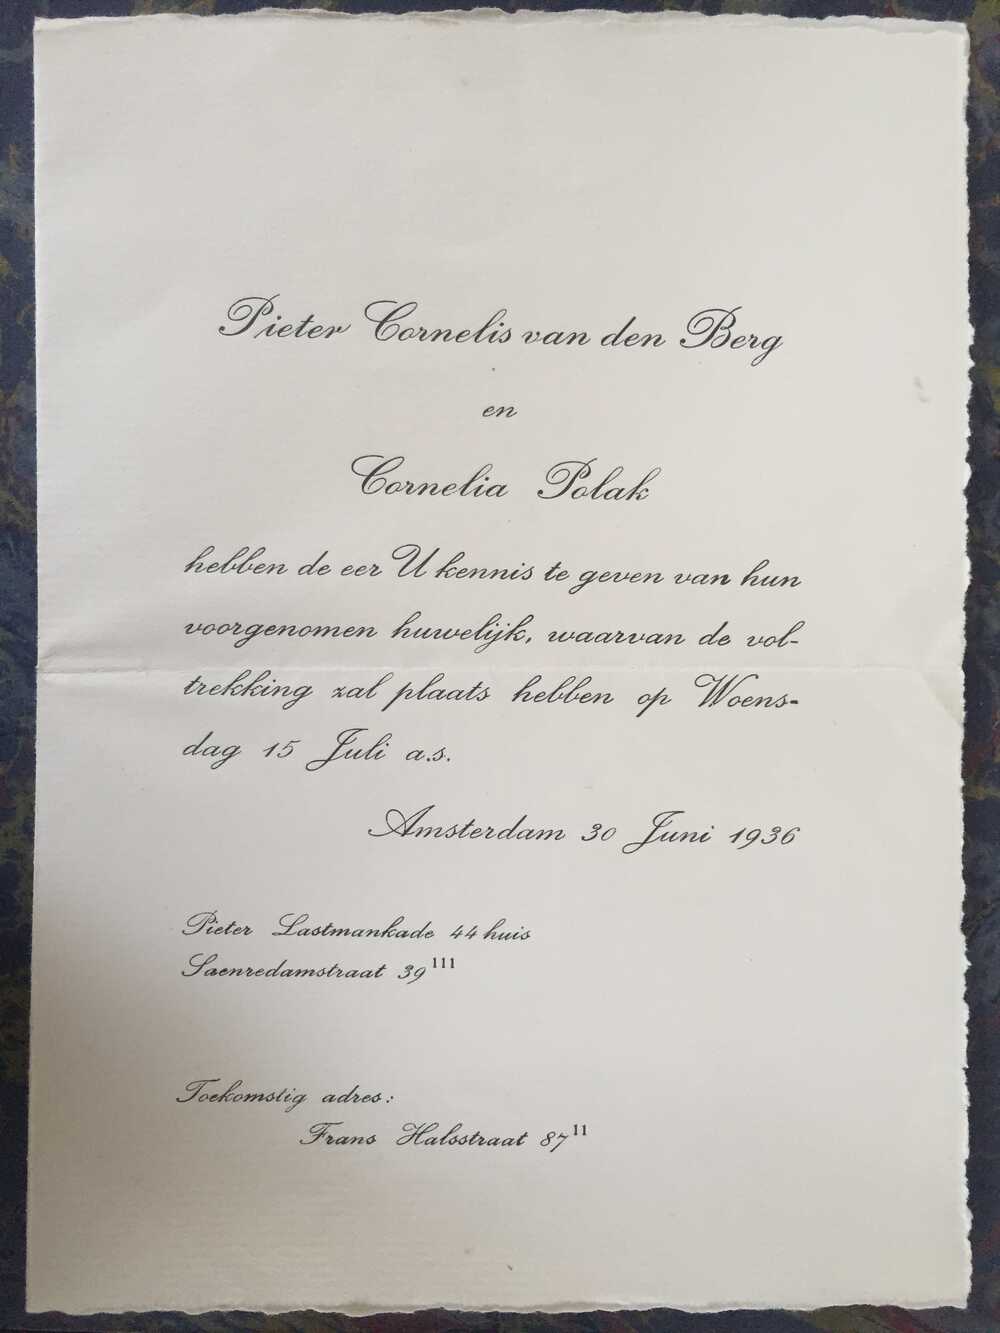 Pieter Cornelis van den Berg
en
Cornelia Polak
hebben de eer U kennis te geven van hun
voorgenomen huwelijk, waarvan de vol-
trekking zal plaats hebben op Woens-
dag 15 Juli a.s.
Amsterdam 30 Juni 1936
Pieter Lastmankade 44 huis
Saenredamstraat 39 III
Toekomstig adres:
Frans Halsstraat 87 II